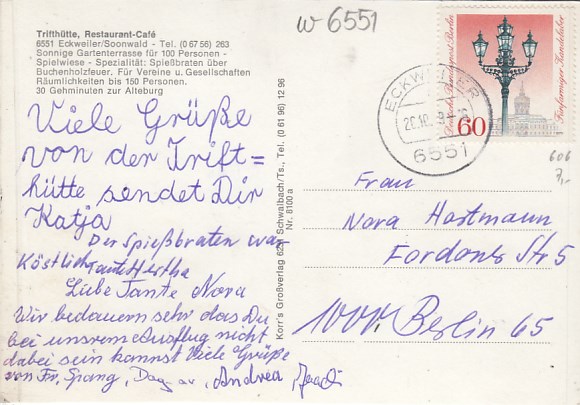 Trifthütte, Restaurant-Café
6551 Eckweiler/Soonwald - Tel. (0 67 56) 263
Sonnige Gartenterrasse für 100 Personen -
Spielwiese - Spezialität: Spießbraten über
Buchenholzfeuer. Für Vereine u. Gesellschaften
Räumlichkeiten bis 150 Personen.
30 Gehminuten zur Alteburg
w 6551
Viele Grüße
von der Trift=
hütte sendet Dir
Katja
Der Spießbraten war
Köstlich Tante Hertha
Liebe Tante Nora
Wir bedauern sehr das Du
bei unsrem Ausflug nicht
dabei sein kannst Viele Grüße
von Fr. Spang, Andrea
Korr's Großverlag 6231 Schwalbach/Ts., Tel. (0 61 96) 12 96
Nr. 8100 a
ECKWEILER
6551
Deutsche Bundespost Berlin
Fünfarmiger Kandelaber
60
606
7,-
Frau
Nora Hastmann
Fordons Str 5
1000 Berlin 65